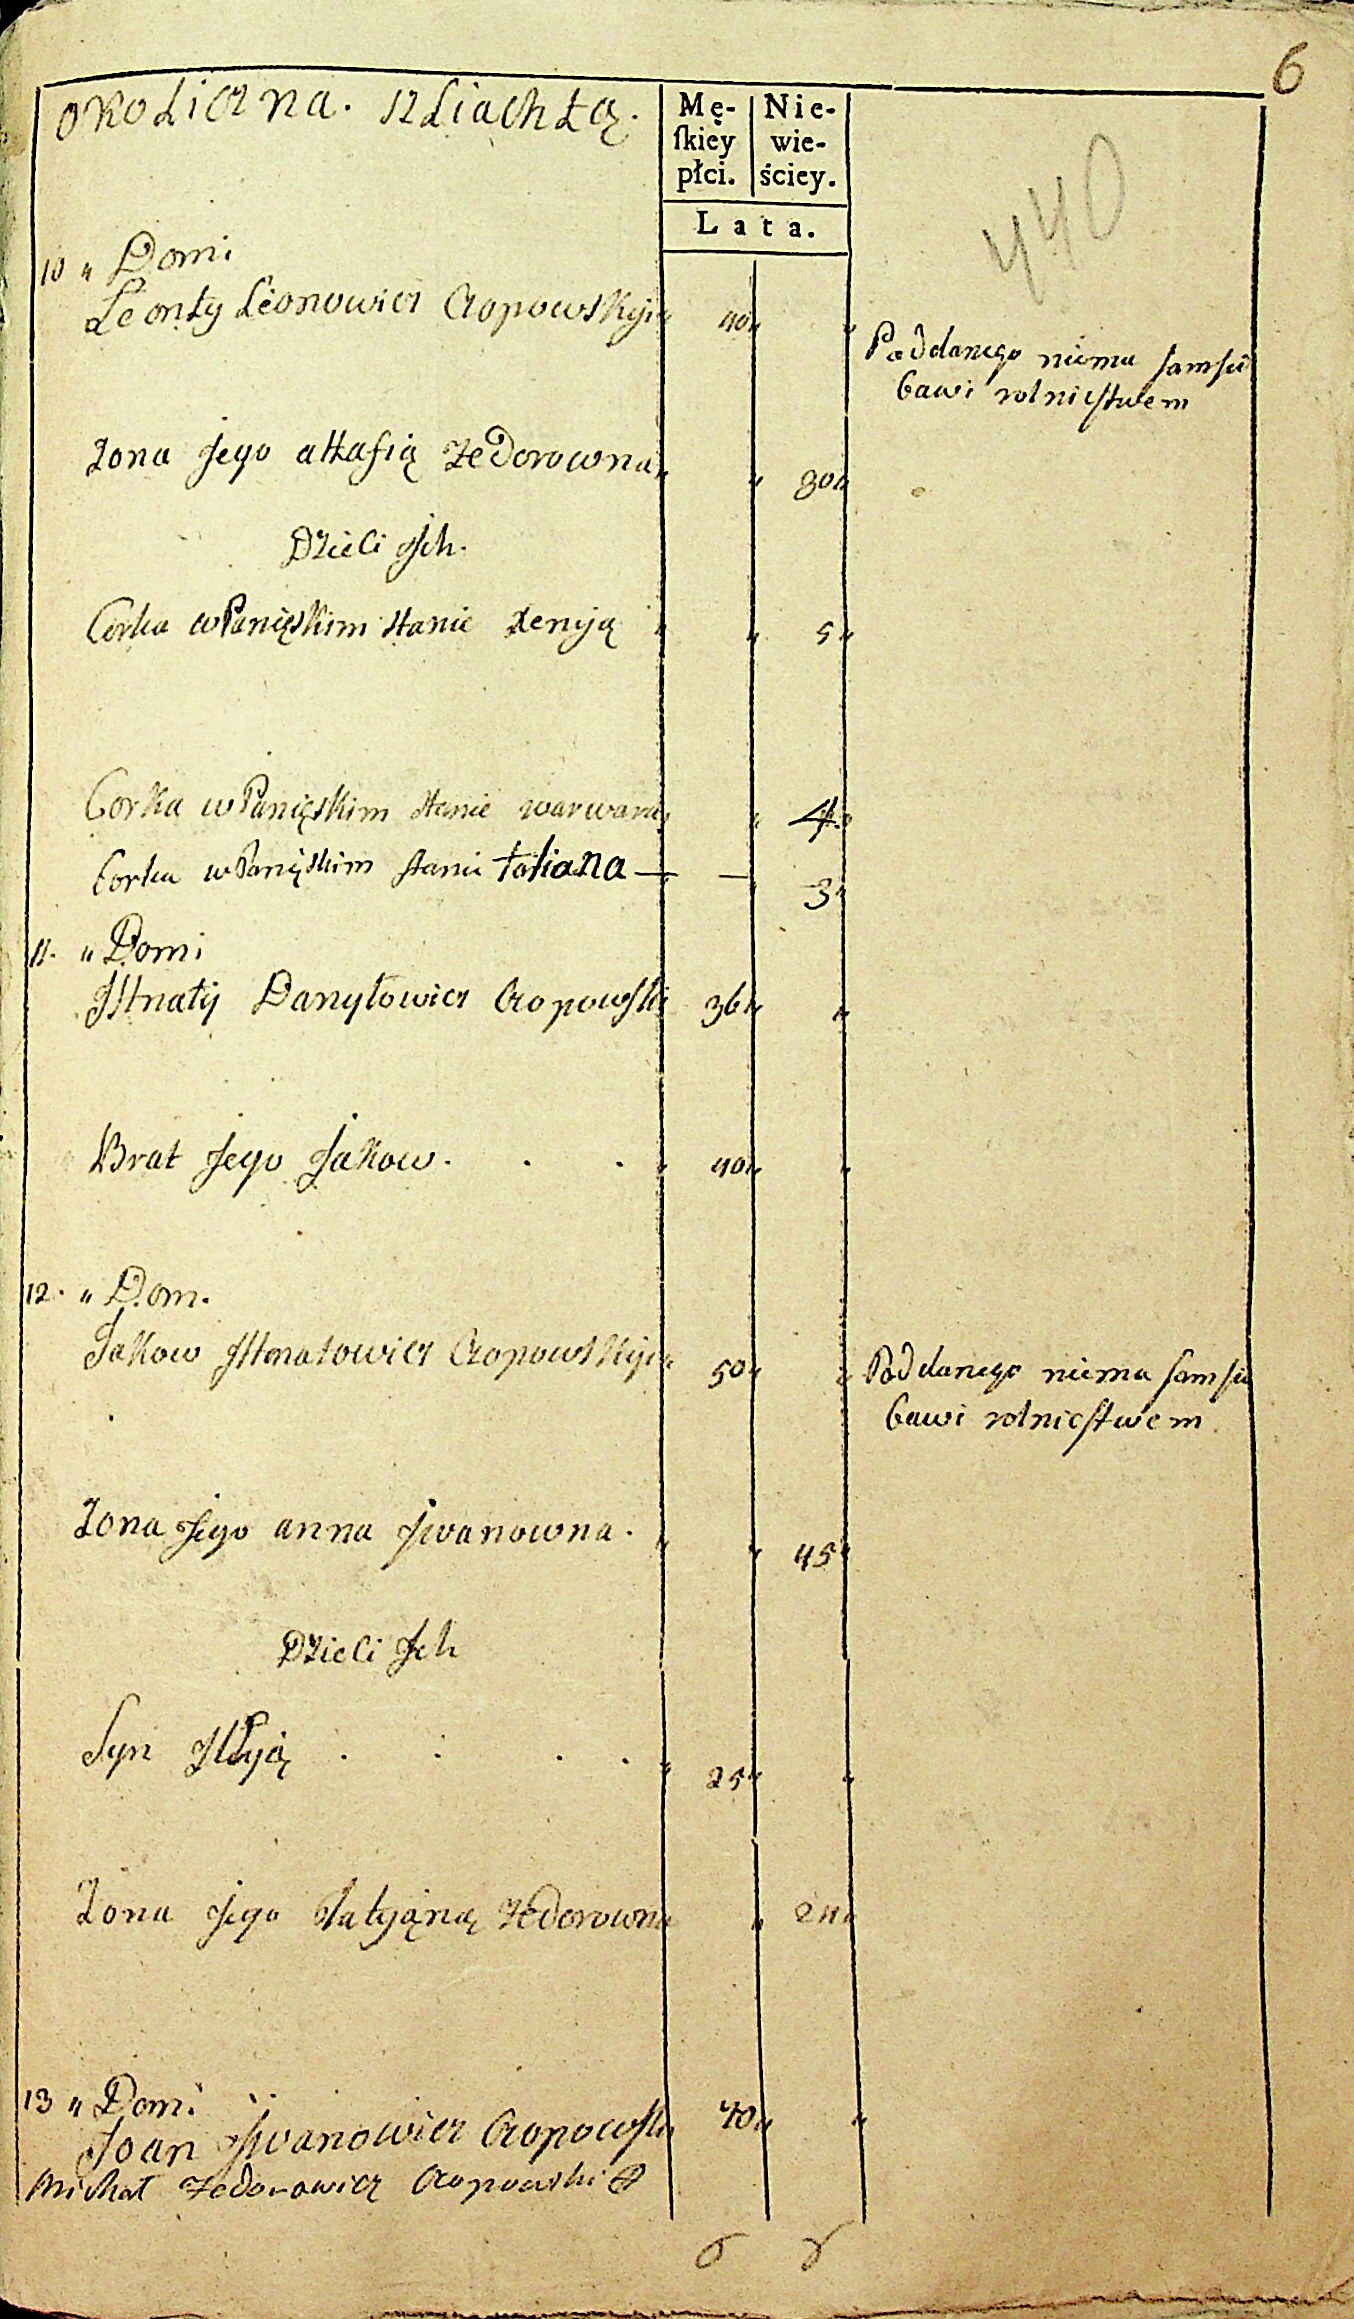 6
okoliczna. szliachtą.
Mę-
ſkiey
płci.
Nie-
wie-
ściey.
Lata.
440
10 " Dom:
Leonty Leonowicz Czopowskyi " 40 " "
Poddanego niema sam sie
bawi rolnictwem
Zona Jego Zedorowna " " 30 "
Dzieci Jch.
Corka w Panięskim stanie Xeniją " " 5 "
Corka w Panięskim stanie warwara " " 4 "
Corka w Panięskim stanie tatiana — — 3 "
11. " Dom:
Danyłowicz Czopowski 36 " "
Brat Jego Jakow . . . " 40 " "
12. " Dom.
Jakow Czopowskyi " 50 " "
Poddanego niema sam sie
bawi rolnictwem
Zona Jego anna Jwanowna . " " 45 "
Dzieci Jch
Syn Jllyją . . . . " 25 " "
Zona Jego Tatyjąną Zedorowna " 24 "
13 " Dom:
Joan Jwanowicz Czopowski 70 " "
Michał Zedorowicz Czopowski